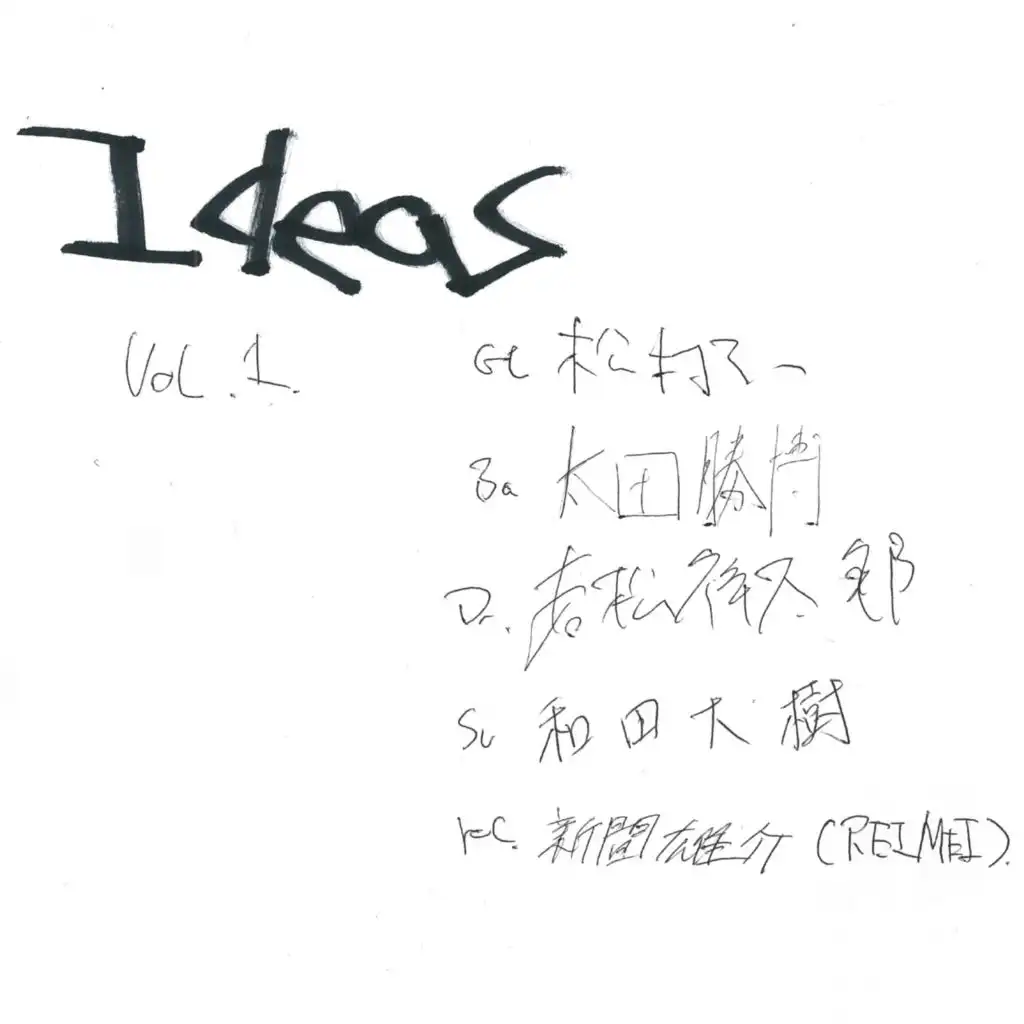 Ideas
Vol.1.
Gt 松村
Ba 太田勝博
Dr. 若松 太郎
Su 和田大樹
rec. 新間雄介 (REIMEI).